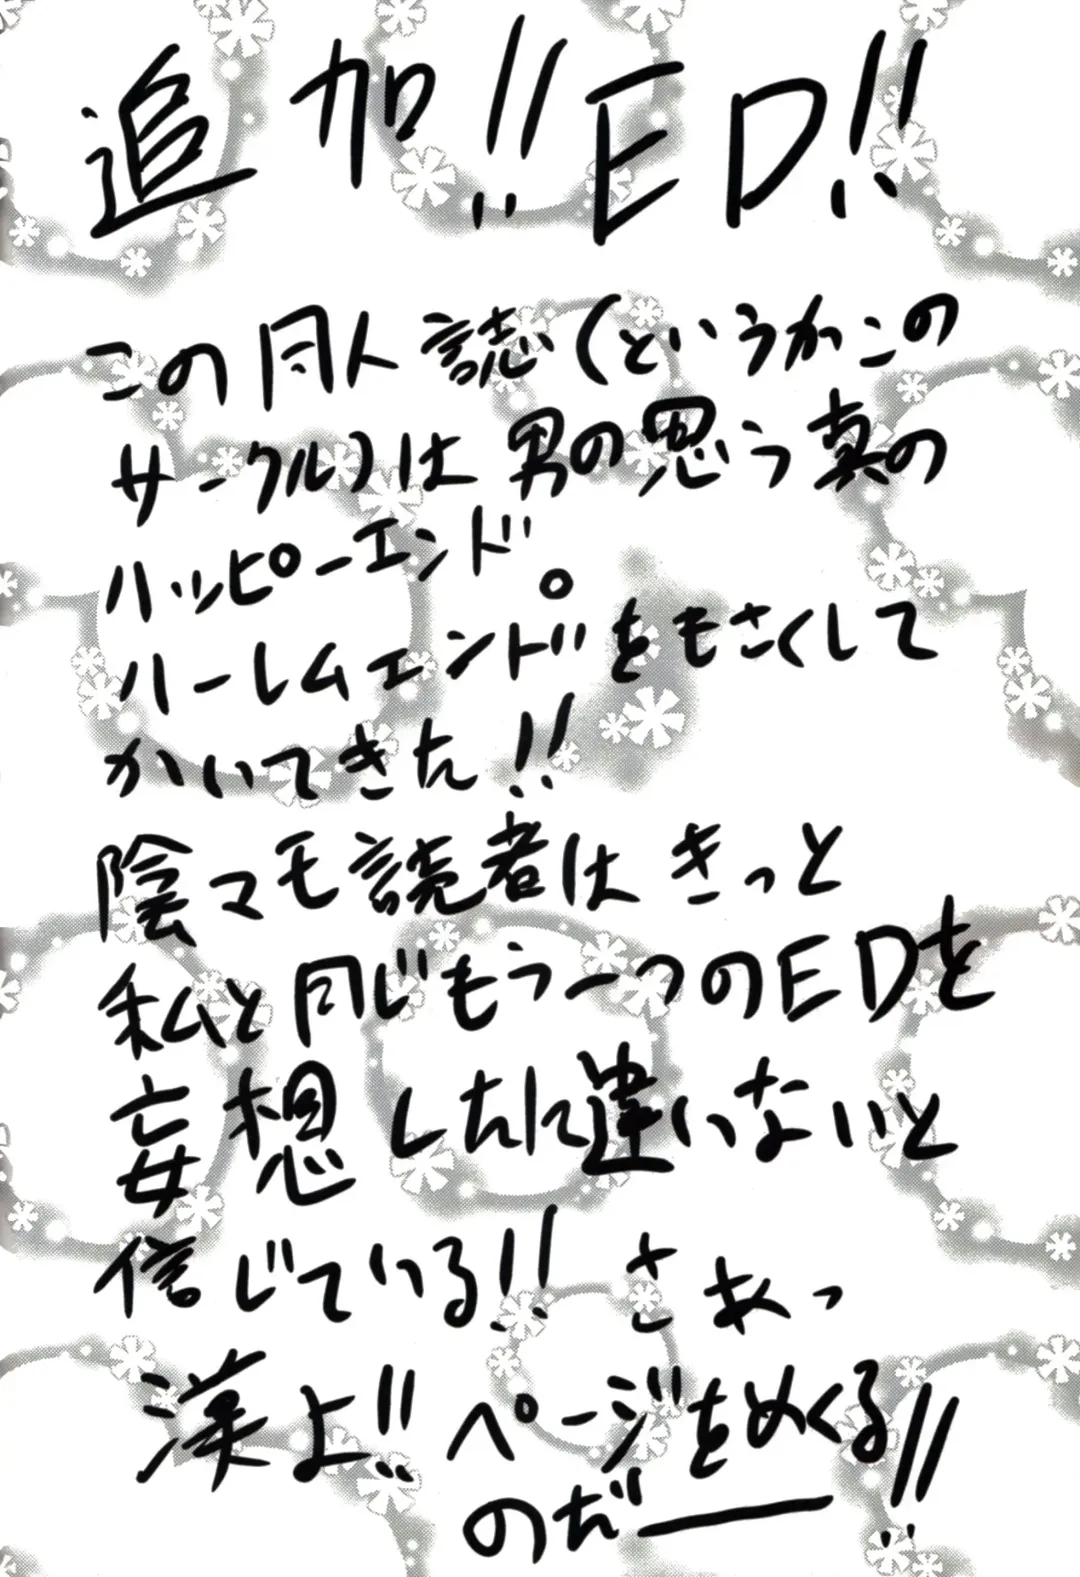 追加!!ED!!
この同人誌(というかこの
サークル)は男の思う真の
ハッピーエンド。
ハーレムエンドをもさくして
かいてきた!!
陰マモ読者はきっと
私と同じもう一つのEDを
妄想したに違いないと
信じている!! さあっ
漢よ!! ページをめくる!!
のだー